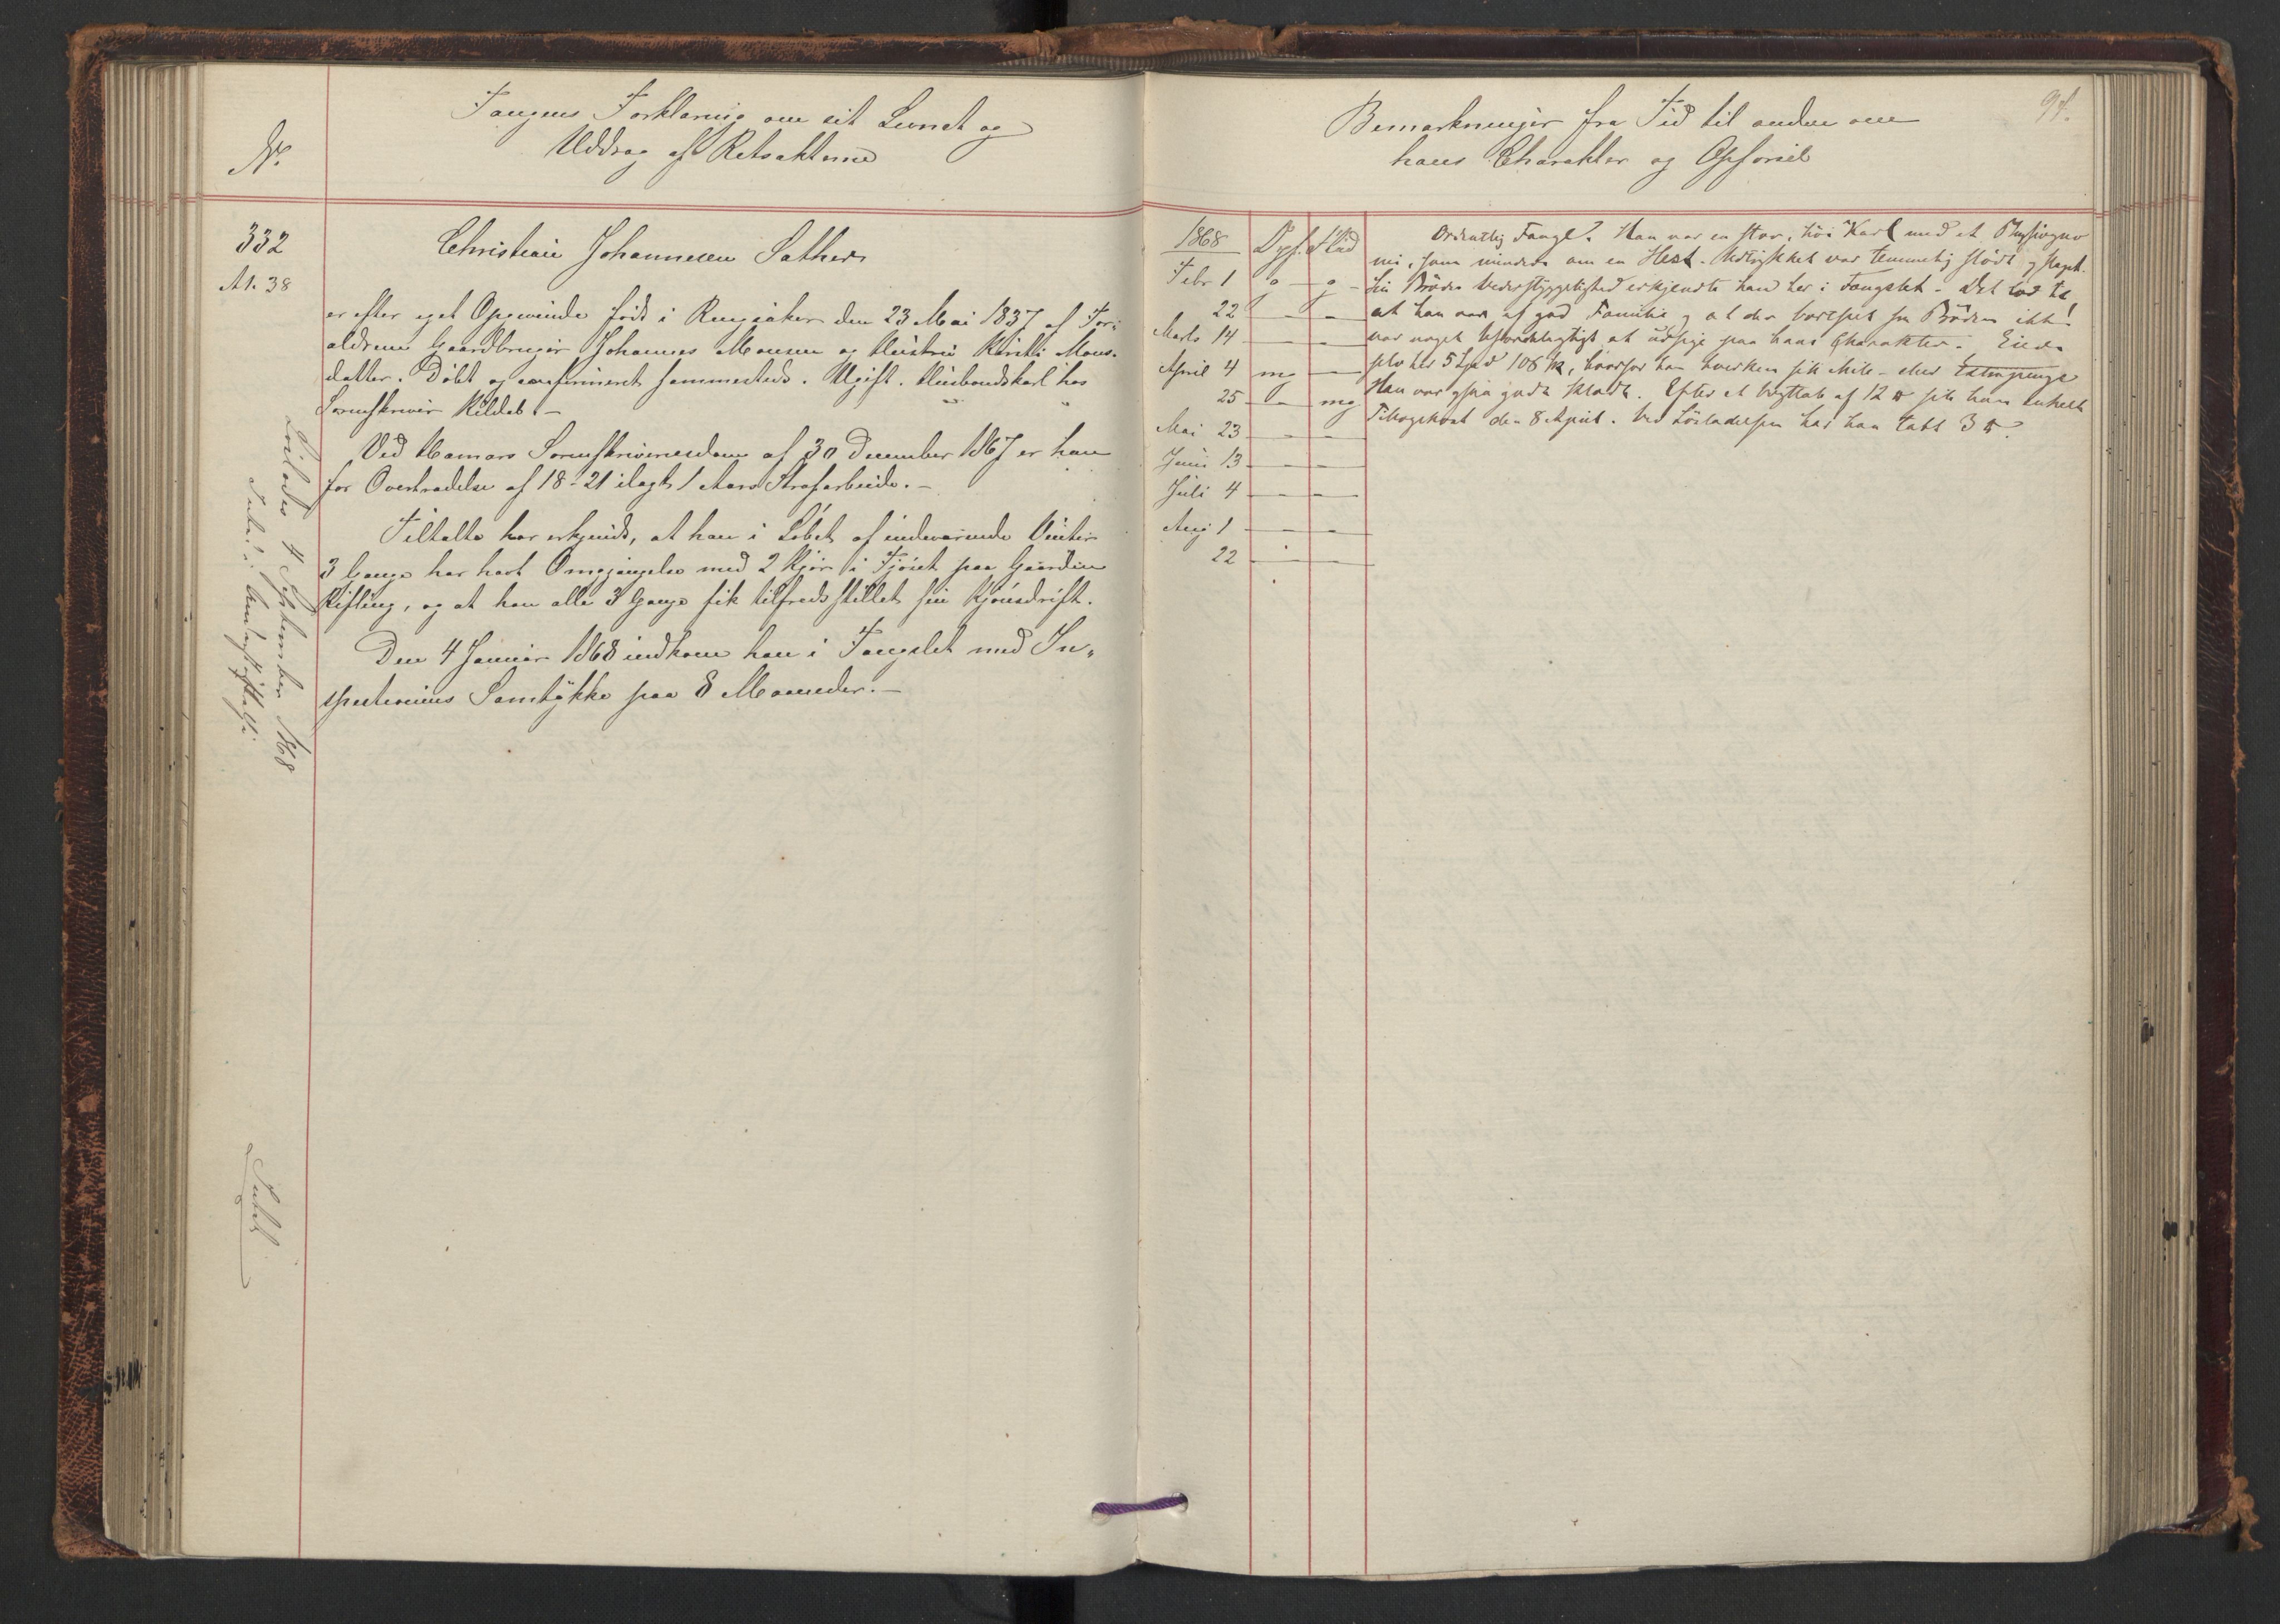 Fangens Forklaring om sit Levnet og
Uddrag af Retsakterne
No.
332
A1. 38
Christian Johannesen Sæther
er efter eget Opgivende født i Ringsaker den 23 Mai 1837 af For-
ældrene Gaardbruger Johannes Monsen og Hustru Kirsti Mons-
datter. Døbt og confirmeret sammesteds. Ugift. Husbondskarl hos
Sorenskriver Kildal. -
Ved Hamars Sorenskriveriesdom af 30 December 1867 er han
for Overtrædelse af 18-21 ilagt 1 Aars Strafarbeide. -
Tiltalte har erkjendt, at han i Løbet af indeværende Vinter
3 Gange har havt Omgjængelse med 2 Kjør i Fjøset paa Gaarden
Kisling, og at han alle 3 Gange fik tilfredsstillet sin Kjønsdrift.
Den 4 Januar 1868 indkom han i Fængslet med In-
spectionens Samtykke paa 8 Maaneder. -
Løslades 4 September 1868
Intet
Bemærkninger fra Tid til anden om
hans Charakter og Opførsel
94.
1868 Opf. Flid
Febr 1 g - g -
22 - -
Marts 14 - -
April 4 mg -
25 - mg
Mai 23 - -
Juni 13 - -
Juli 4 - -
Aug 1 - -
22 - -
Ordentlig Fange. Han var en stor, høi Karl med et Physiogno-
mi, som mindede om en Hest. Udtrykket var temmelig slødt og slapt.
Sin Brødes Vederstyggelighed erkjendte han her i Fængslet. Det lod til
at han var af god Familie og at der bortseet fra Brøden ikke
var noget ufordelagtigt at udsige paa hans Charakter.
selv her 5 Spd 106 ſk, hvorfor han hverken fik Mile- eller Extrapenge
Han var ogsaa godt klædt. Efter et Vægttab af 12 ℔ fik han enkelt
Tillægskost den 8 April. Ved Løsladelsen har han tabt 3 ℔.